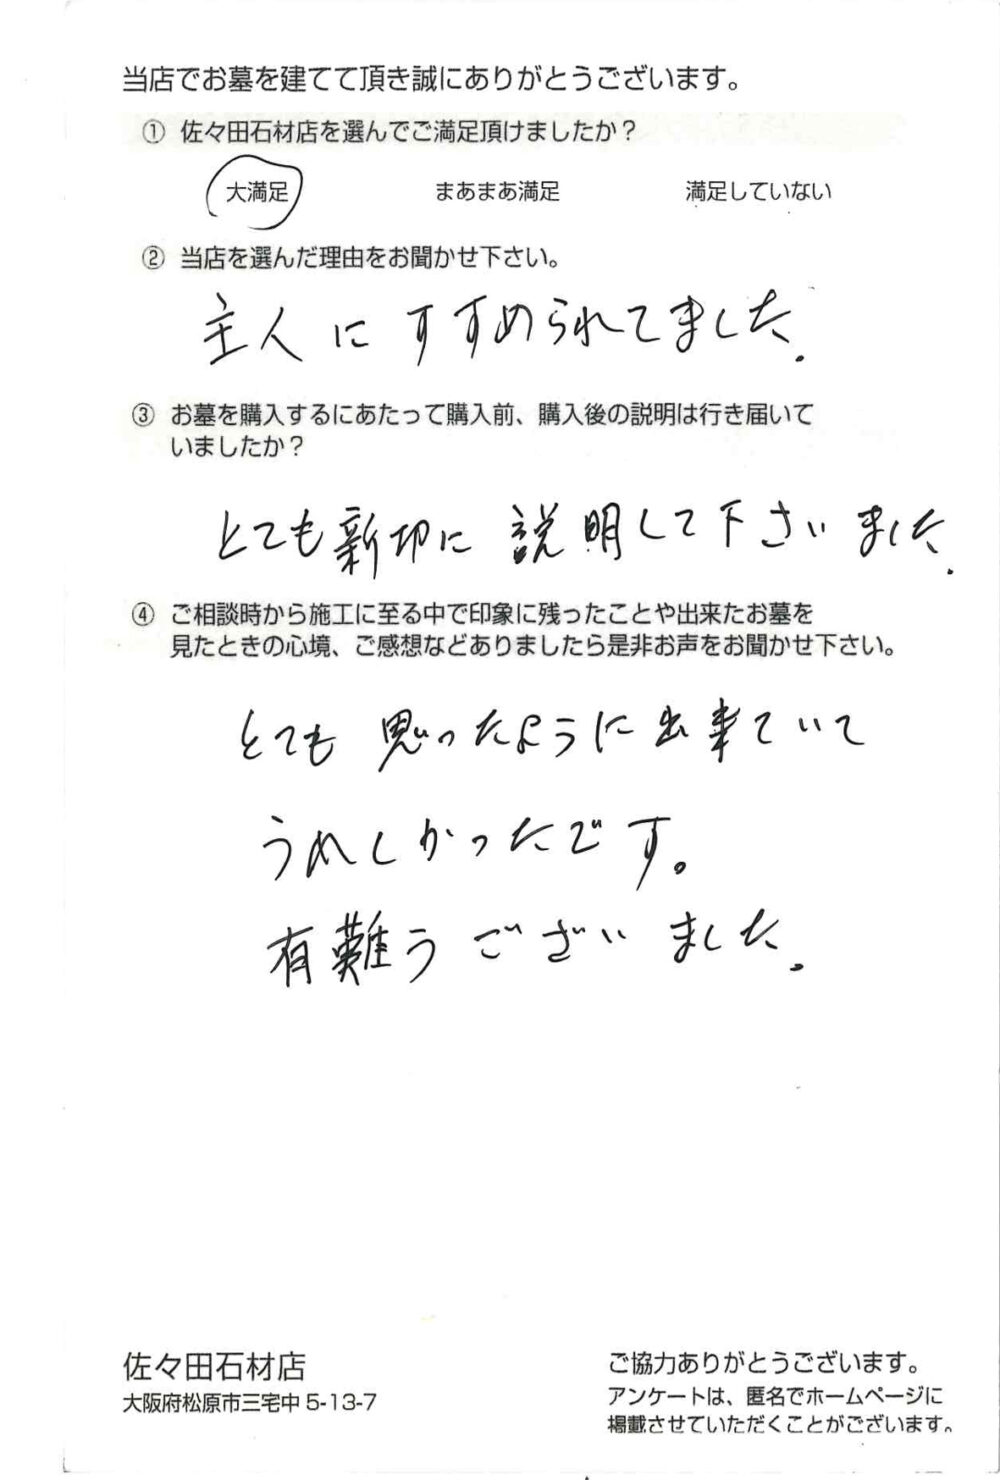 当店でお墓を建てて頂き誠にありがとうございます。
① 佐々田石材店を選んでご満足頂けましたか？
大満足 まあまあ満足 満足していない
② 当店を選んだ理由をお聞かせ下さい。
主人にすすめられてました.
③ お墓を購入するにあたって購入前、購入後の説明は行き届いて
いましたか？
とても新切に説明して下さいました.
④ ご相談時から施工に至る中で印象に残ったことや出来たお墓を
見たときの心境、ご感想などありましたら是非お声をお聞かせ下さい。
とても思ったように出来ていて
うれしかったです。
有難うございました.
佐々田石材店
大阪府松原市三宅中 5-13-7
ご協力ありがとうございます。
アンケートは、匿名でホームページに
掲載させていただくことがございます。